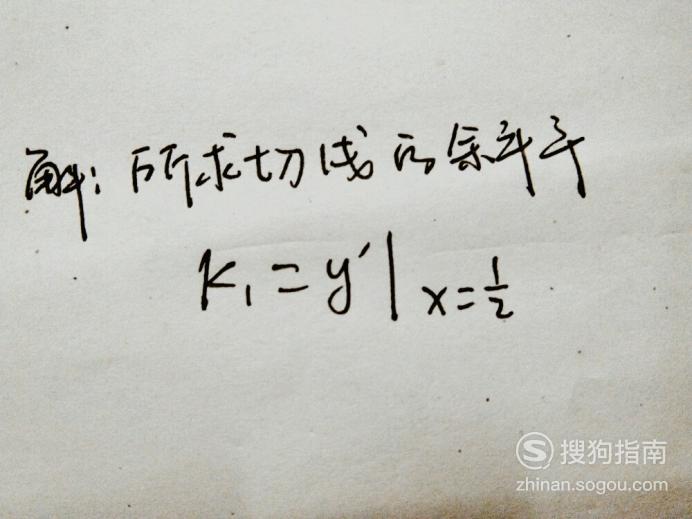 解：所求切线的斜率
K₁=y′|x=1/2
搜狗指南
zhinan.sogou.com